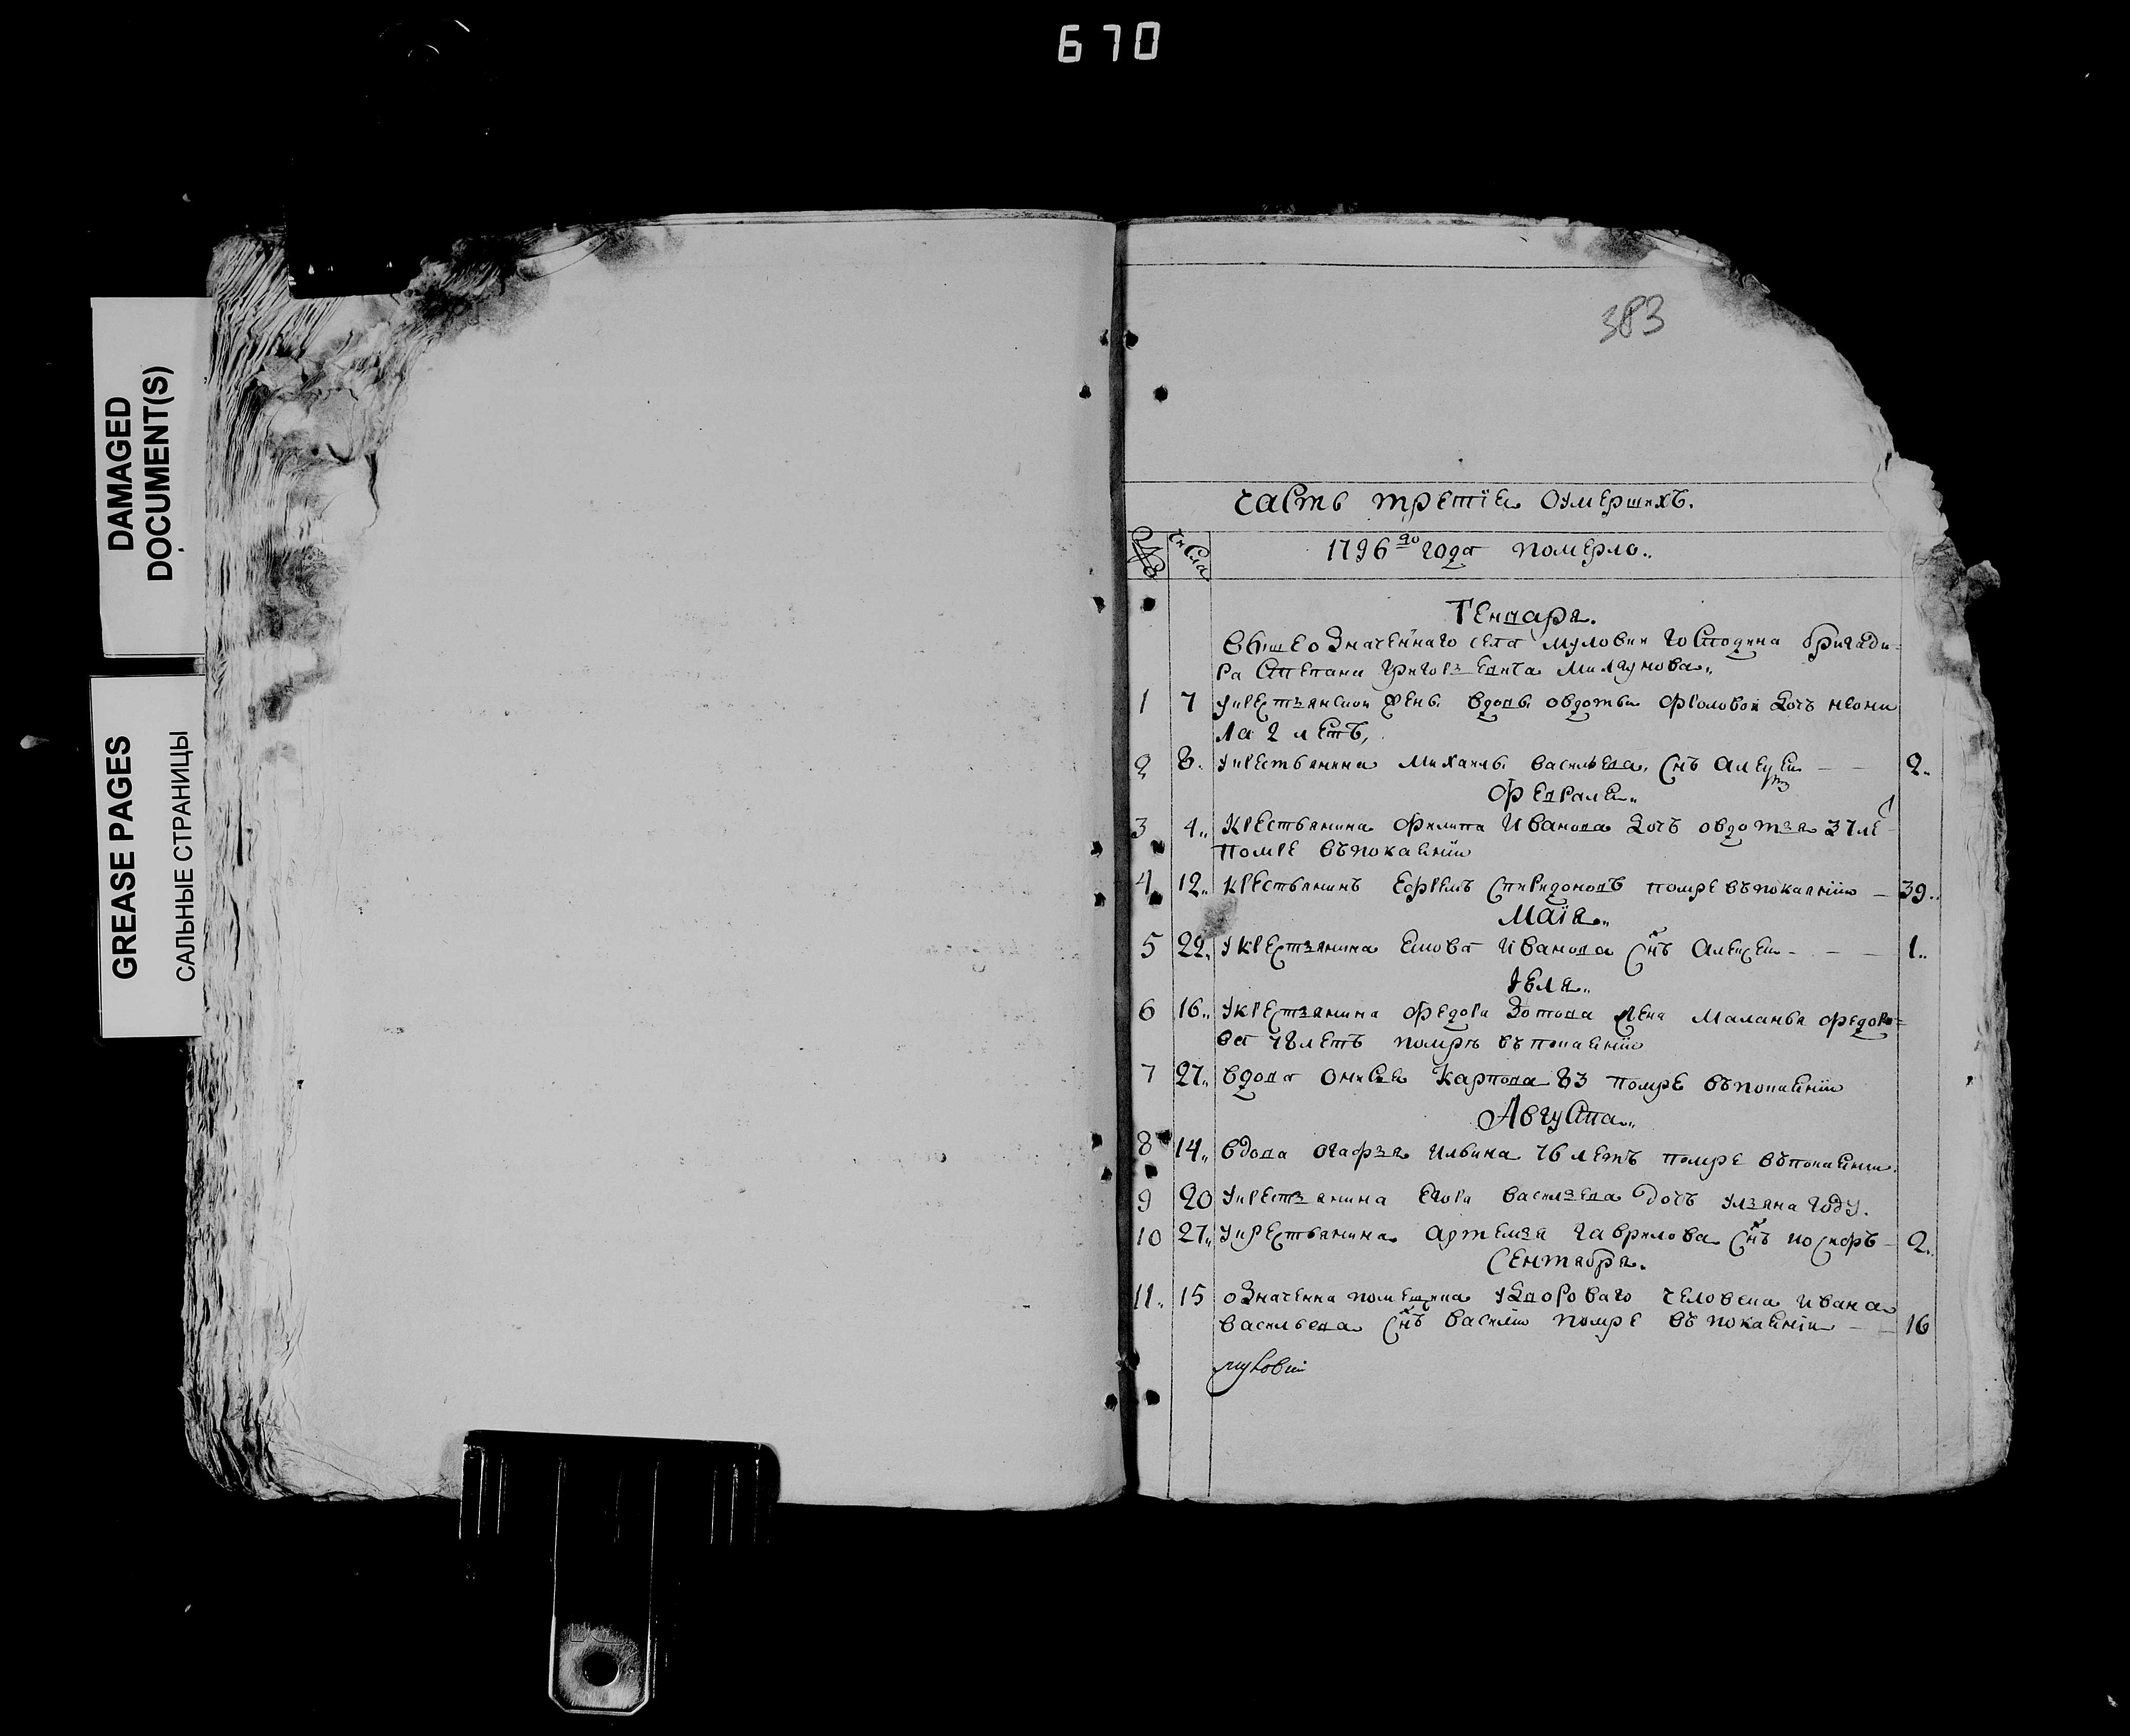 670
DAMAGED
DOCUMENT(S)
GREASE PAGES
САЛЬНЫЕ СТРАНИЦЫ
383
Часть третіея оумершихъ.
№ числа 1796го года померло..
Генваря.
вышеозначеннаго села Муловки господина бригади-
ра Степана Григорьевича Милгунова..
1 7 укрестьянской вдовы овдотьи фроловой дочь
ла 2 летъ,
2 8. укрестьянина Михаилы васильева, снъ Алексей — — 2..
Февраля..
3 4.. Крестьянина Филипа Иванова дочь овдотья 37 ле
помре въпокаянїи
4 12.. крестьянинъ Ефремъ Спиридоновъ помре въпокаянїи — 39..
Маїя..
5 22. Укрестьянина Иванова снъ Алексей - - — 1..
Іюля..
6 16.. Укрестьянина Федора Зотова жена Маланья федоро=
ва 78 летъ помре въ покаянїи
7 27.. вдова Карпова 83 помре въпокаянїи
Августа..
8 14.. вдова огафья Ильина 76 летъ помре въпокаянїи.
9 20 Укрестьянина Егора васильева дочь ульяна году.
10 27.. укрестьянина Артемья гаврилова снъ — 2..
Сентября.
11. 15 означенна помещика удвороваго человека ивана
васильева снъ василїи помре въ покаянїи — — 16